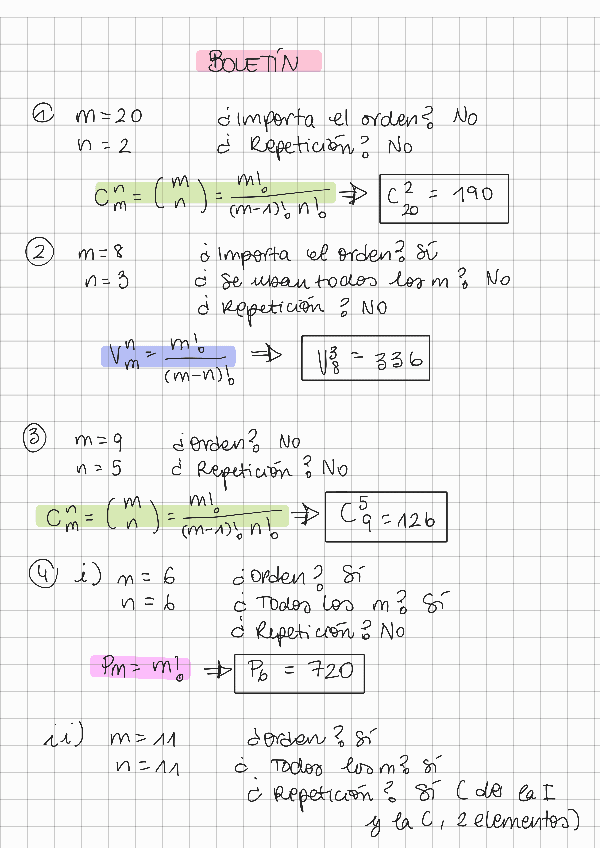 BOLETÍN
① m = 20 ¿Importa el orden? No
n = 2 ¿Repetición? No
C_m^n = (m n) = m! / (m-1)! n! ⇒ C_20^2 = 190
② m = 8 ¿Importa el orden? Sí
n = 3 ¿Se usan todos los m? No
¿Repetición? NO
V_m^n = m! / (m-n)! ⇒ V_8^3 = 336
③ m = 9 ¿Orden? No
n = 5 ¿Repetición? No
C_m^n = (m n) = m! / (m-1)! n! ⇒ C_9^5 = 126
④ i) m = 6 ¿Orden? Sí
n = 6 ¿Todos los m? Sí
¿Repetición? No
Pm = m! ⇒ P6 = 720
ii) m = 11 ¿Orden? Sí
n = 11 ¿Todos los m? Sí
¿Repetición? Sí (de la I
y la C, 2 elementos)